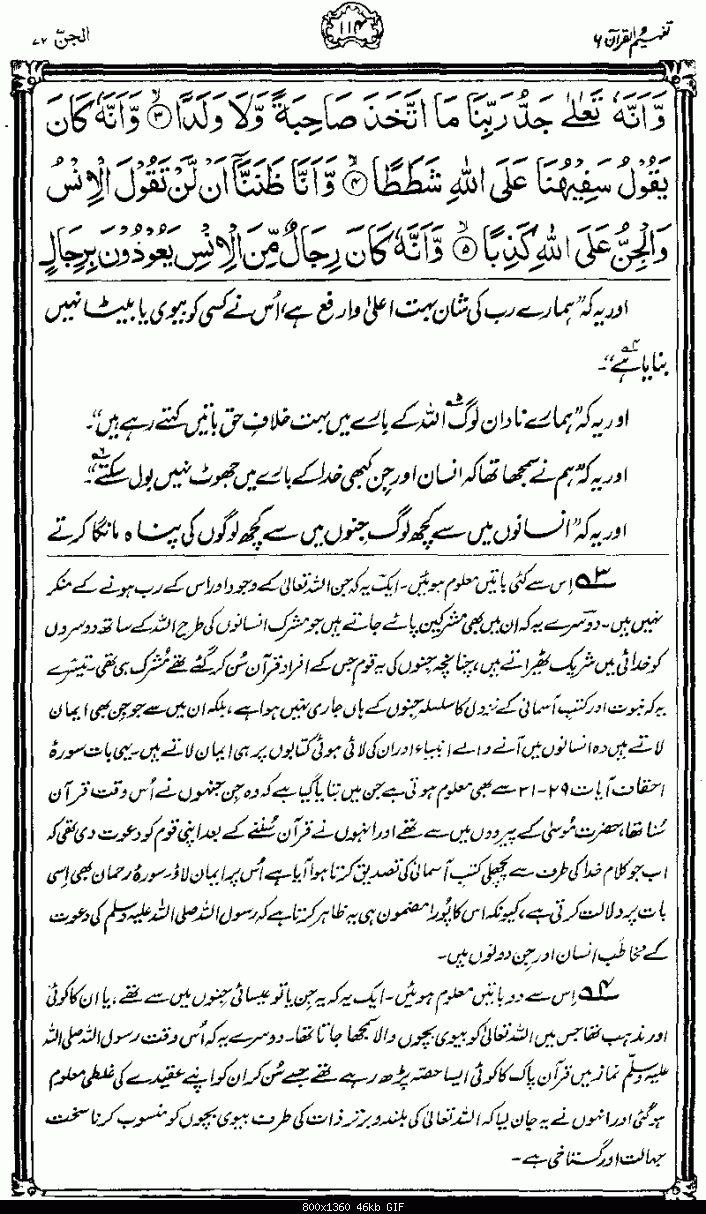 تفہیم القرآن ۶
۱۱۴
الجن ۷۲
وَّاَنَّهٗ تَعٰلٰى جَدُّ رَبِّنَا مَا اتَّخَذَ صَاحِبَةً وَّلَا وَلَدًا ۙ﴿۳﴾ وَّاَنَّهٗ كَانَ
يَقُوْلُ سَفِيْهُنَا عَلَى اللّٰهِ شَطَطًا ۙ﴿۴﴾ وَّاَنَّا ظَنَنَّاۤ اَنْ لَّنْ تَقُوْلَ الْاِنْسُ
وَالْجِنُّ عَلَى اللّٰهِ كَذِبًا ۙ﴿۵﴾ وَّاَنَّهٗ كَانَ رِجَالٌ مِّنَ الْاِنْسِ يَعُوْذُوْنَ بِرِجَالٍ
اور یہ کہ ”ہمارے رب کی شان بہت اعلیٰ و ارفع ہے، اُس نے کسی کو بیوی یا بیٹا نہیں
بنایا ہے۴“۔
اور یہ کہ ”ہمارے نادان لوگ۵ اللہ کے بارے میں بہت خلافِ حق باتیں کہتے رہے ہیں“۔
اور یہ کہ ”ہم نے سمجھا تھا کہ انسان اور جِن کبھی خدا کے بارے میں جھوٹ نہیں بول سکتے۶“۔
اور یہ کہ ”انسانوں میں سے کچھ لوگ جنوں میں سے کچھ لوگوں کی پناہ مانگا کرتے
۳ اِس سے کئی باتیں معلوم ہوئیں۔ ایک یہ کہ جن اللہ تعالیٰ کے وجود اور اس کے رب ہونے کے منکر
نہیں ہیں۔ دوسرے یہ کہ ان میں بھی مشرکین پائے جاتے ہیں جو مشرک انسانوں کی طرح اللہ کے ساتھ دوسروں
کو خدائی میں شریک ٹھیراتے ہیں، چنانچہ جنوں کی یہ قوم جس کے افراد قرآن سُن کر گئے تھے مُشرک ہی تھی۔ تیسرے
یہ کہ نبوت اور کتبِ آسمانی کے نزول کا سلسلہ جنوں کے ہاں جاری نہیں ہوا ہے، بلکہ ان میں سے جو جِن بھی ایمان
لاتے ہیں وہ انسانوں میں آنے والے انبیاء اور ان کی لائی ہوئی کتابوں پر ہی ایمان لاتے ہیں۔ یہی بات سورۂ
احقاف آیات ۲۹-۳۱ سے بھی معلوم ہوتی ہے جن میں بتایا گیا ہے کہ وہ جِن جنہوں نے اُس وقت قرآن
سُنا تھا، حضرت مُوسیٰ کے پیرووں میں سے تھے اور انہوں نے قرآن سُننے کے بعد اپنی قوم کو دعوت دی تھی کہ
اب جو کلام خدا کی طرف سے پچھلی کتب آسمانی کی تصدیق کرتا ہوا آیا ہے اُس پر ایمان لاؤ۔ سورۂ رحمان بھی اِسی
بات پر دلالت کرتی ہے، کیونکہ اس کا پُورا مضمون ہی یہ ظاہر کرتا ہے کہ رسول اللہ صلی اللہ علیہ وسلم کی دعوت
کے مخاطَب انسان اور جِن دونوں ہیں۔
۴ اِس سے دو باتیں معلوم ہوئیں۔ ایک یہ کہ یہ جِن یا تو عیسائی جنوں میں سے تھے، یا ان کا کوئی
اور مذہب تھا جس میں اللہ تعالیٰ کو بیوی بچوں والا سمجھا جاتا تھا۔ دوسرے یہ کہ اُس وقت رسول اللہ صلی اللہ
علیہ وسلّم نماز میں قرآن پاک کا کوئی ایسا حصّہ پڑھ رہے تھے جسے سُن کر ان کو اپنے عقیدے کی غلطی معلوم
ہو گئی اور انہوں نے یہ جان لیا کہ اللہ تعالیٰ کی بلند و برتر ذات کی طرف بیوی بچوں کو منسوب کرنا سخت
جہالت اور گستاخی ہے۔
800x1360 46kb GIF